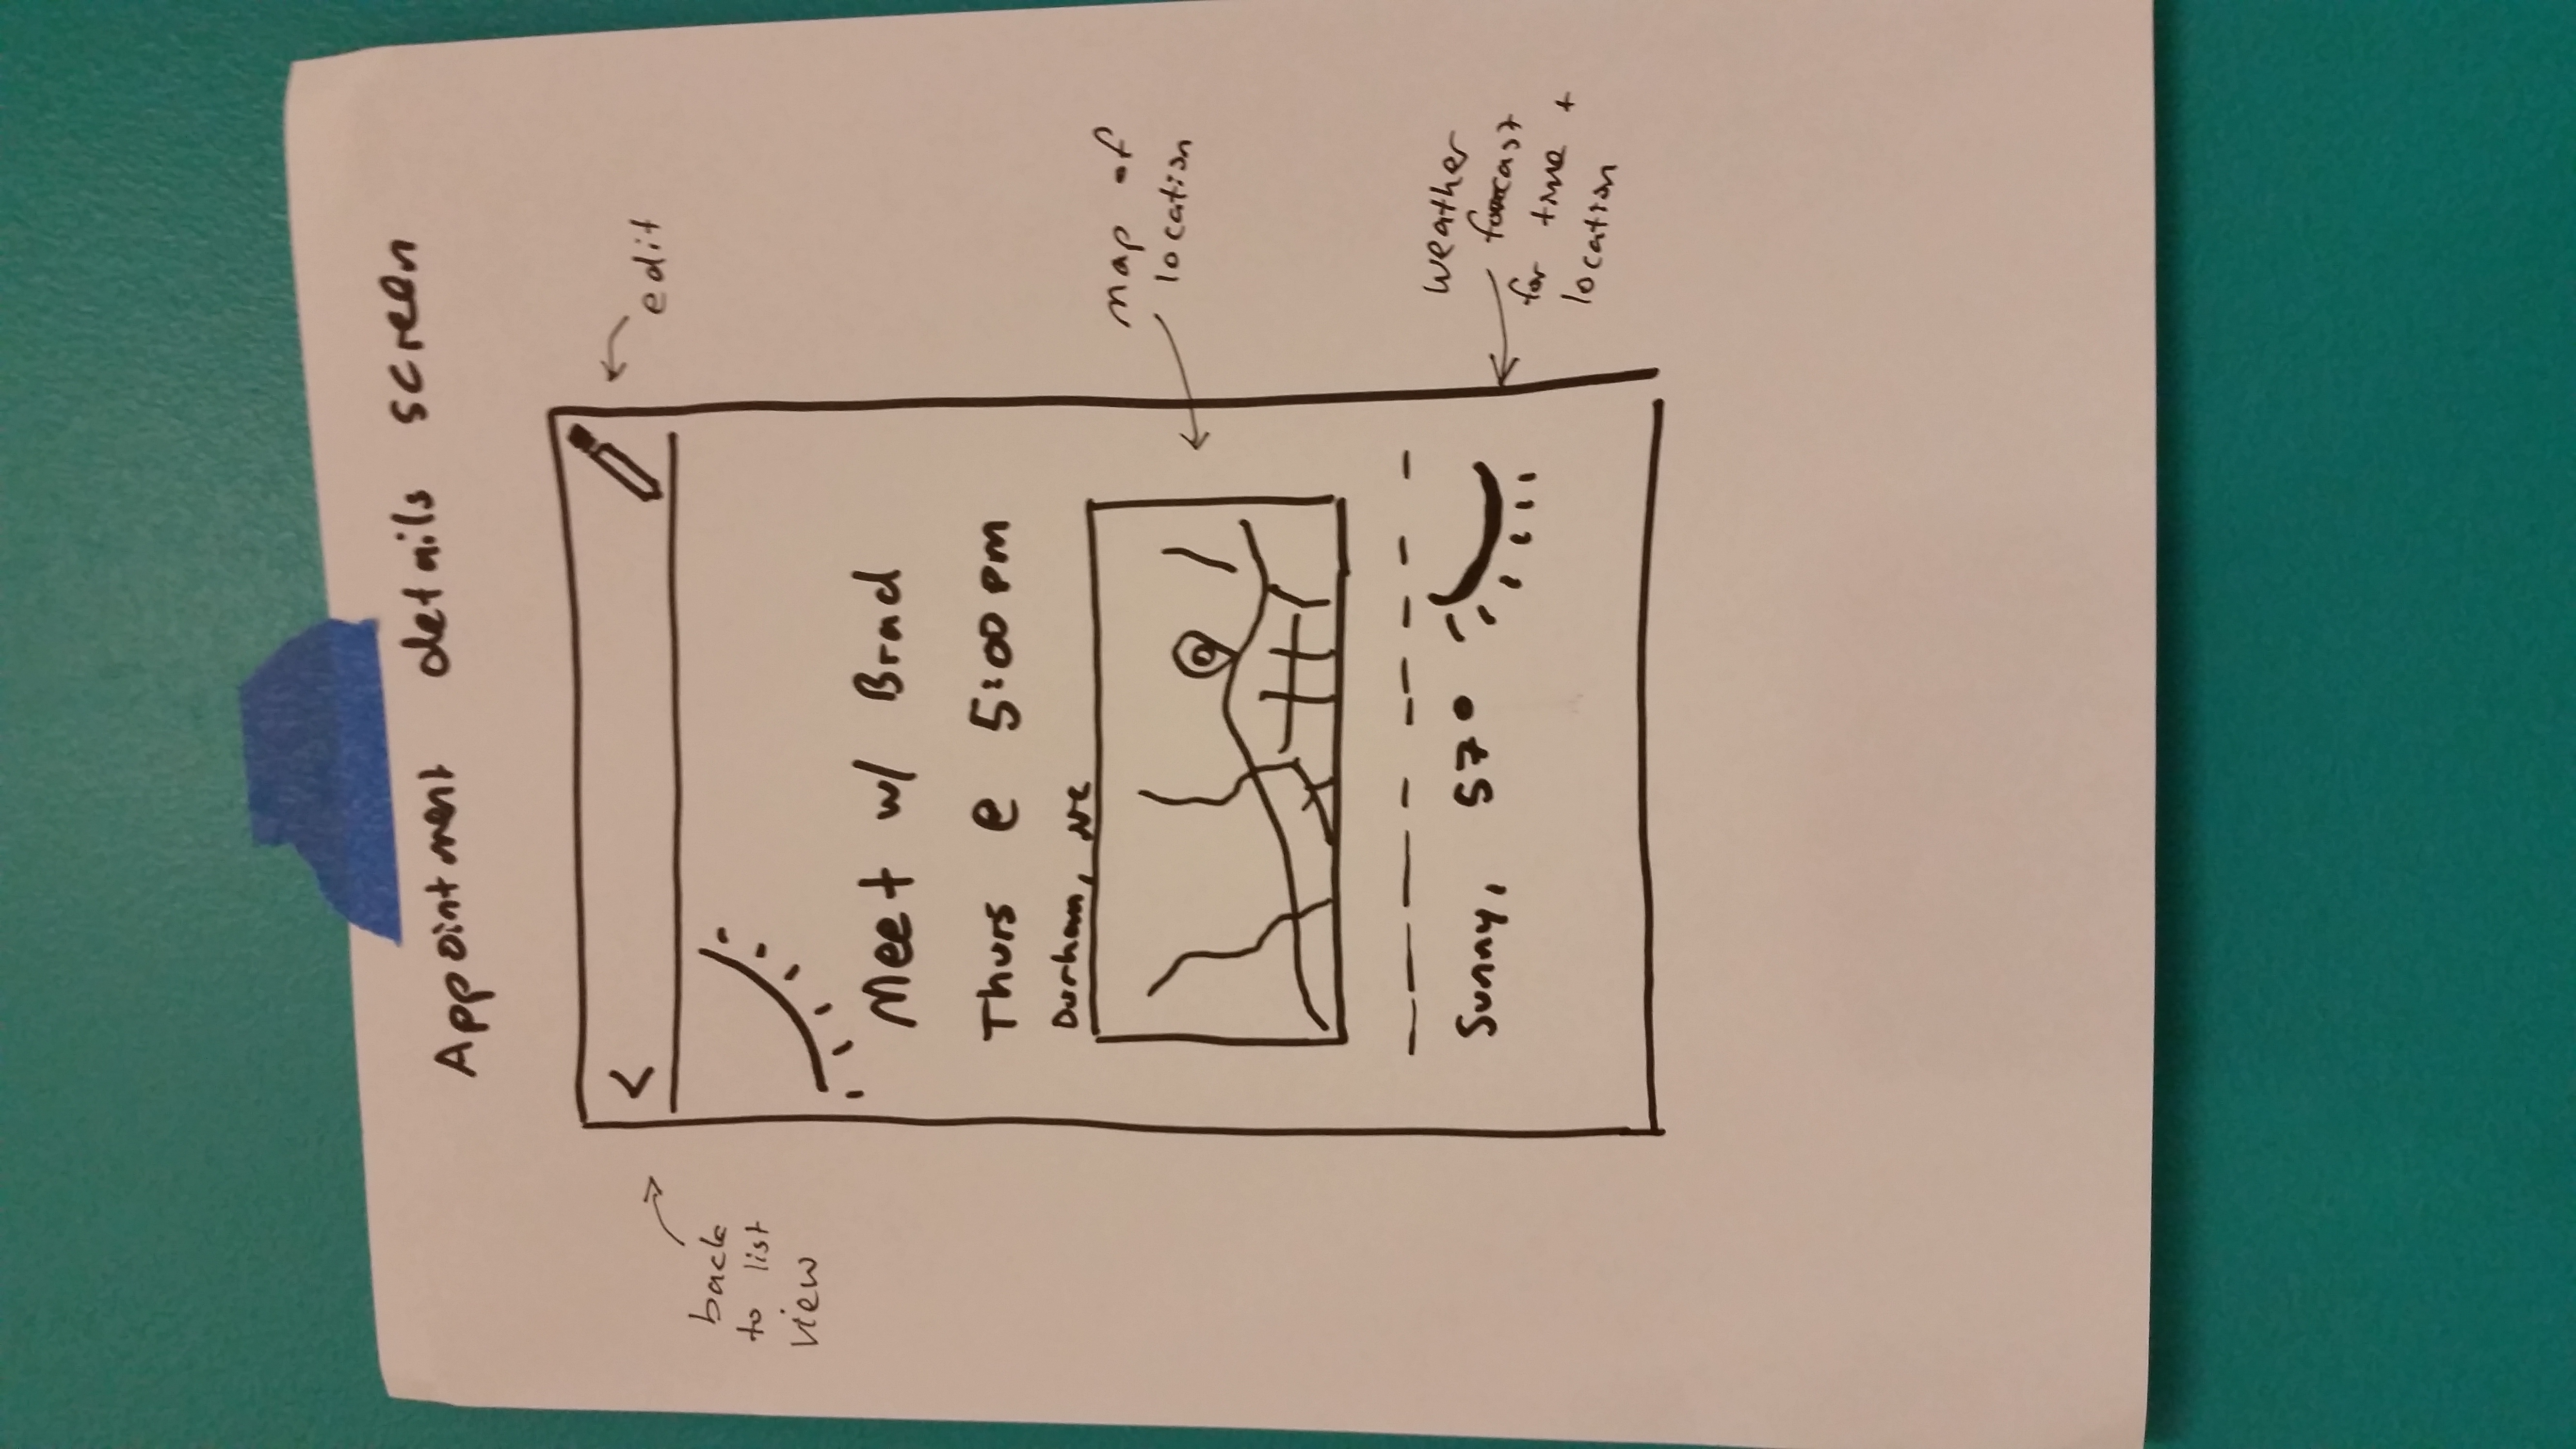 Appointment details screen
<
edit
back
to list
view
Meet w/ Brad
Thurs @ 5:00 pm
Durham, NC
map of
location
Sunny, 57°
weather
forecast
for time +
location